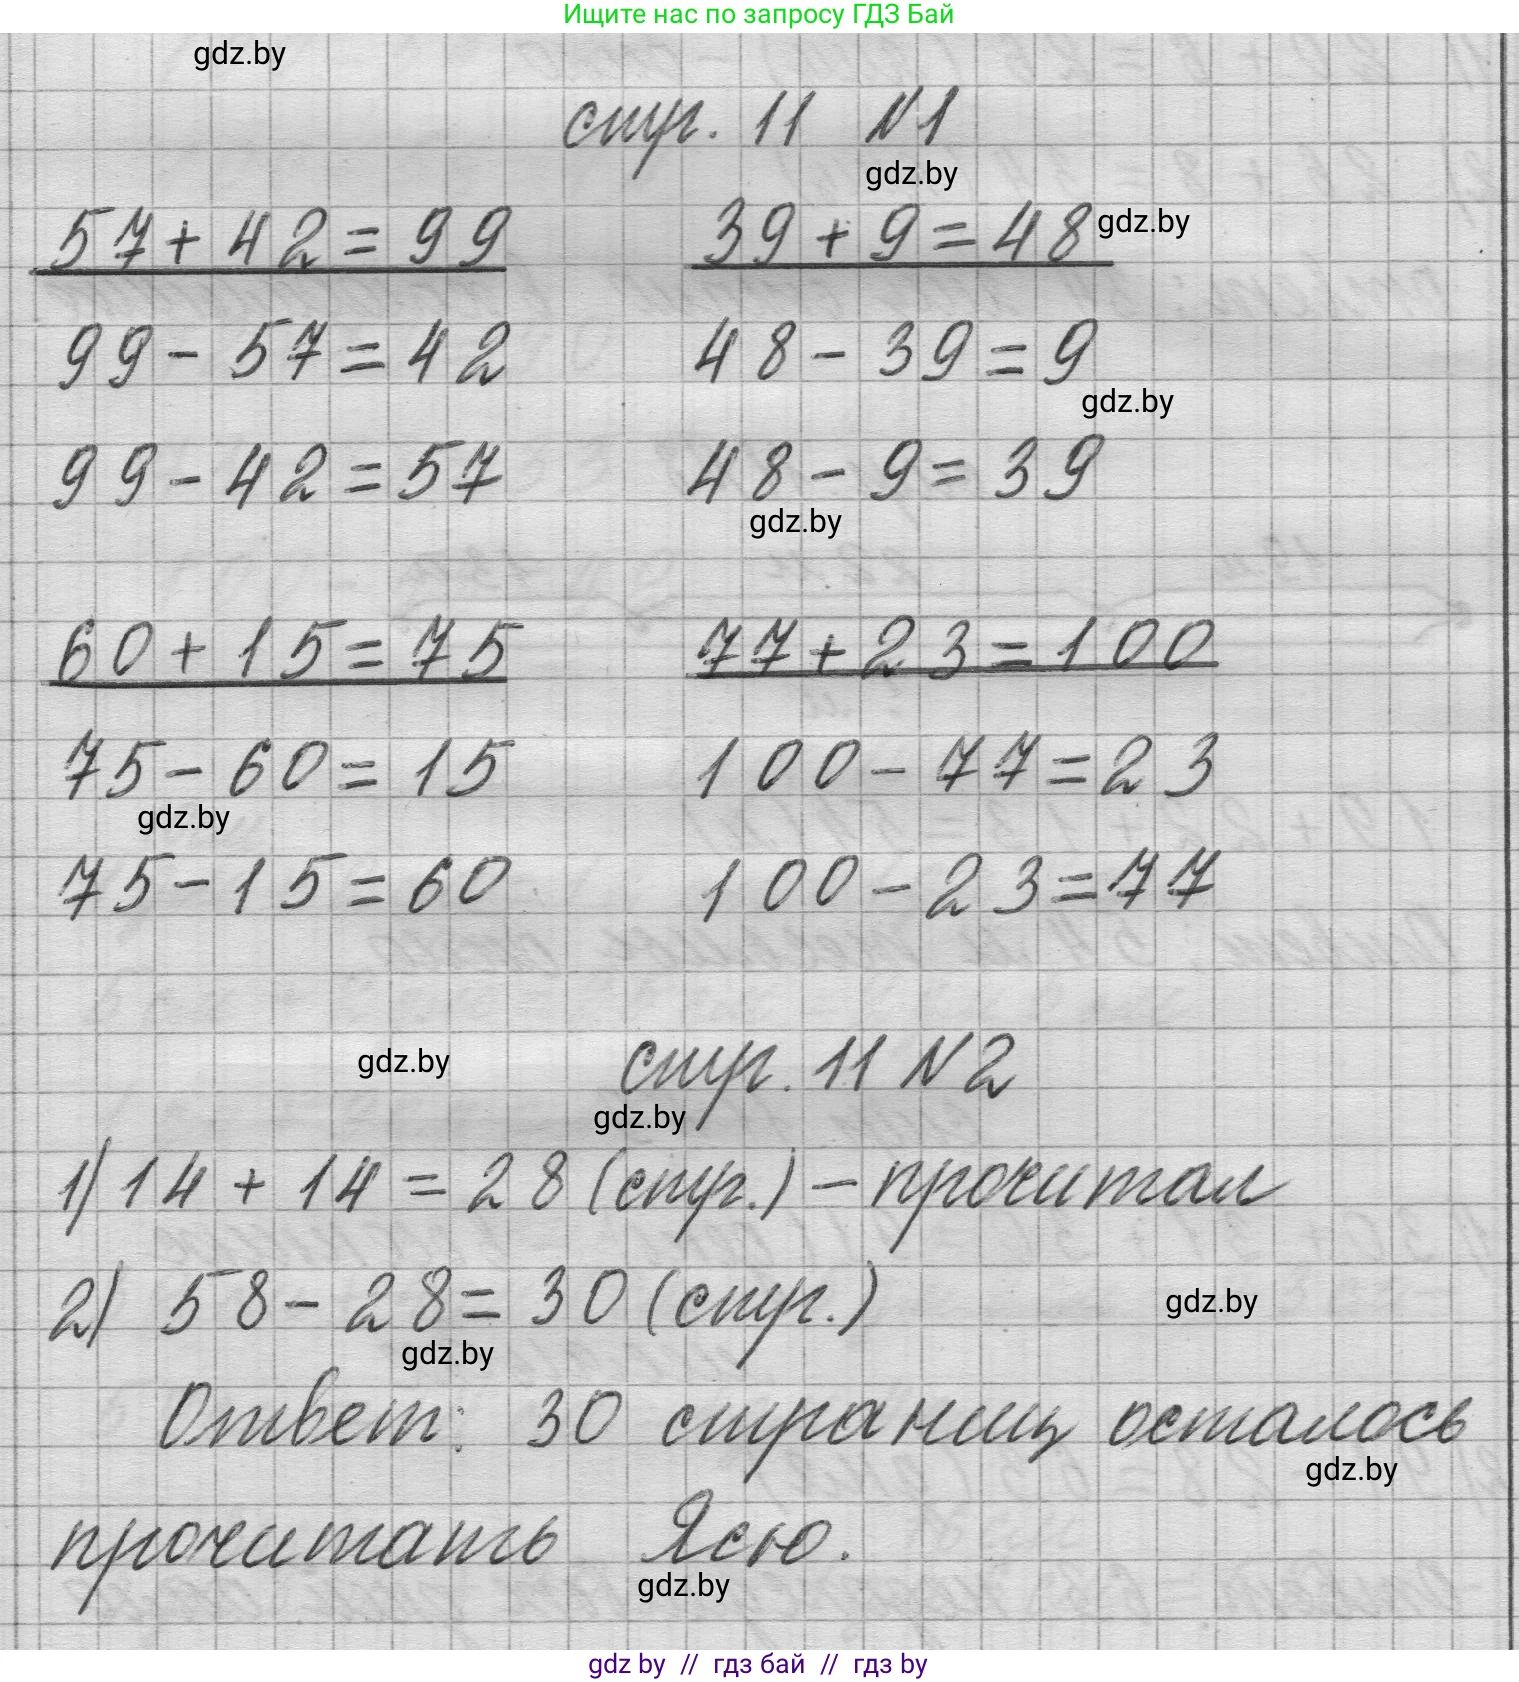 Ищите нас по запросу ГДЗ Бай
gdz.by
стр. 11 №1
gdz.by
57+42=99 39+9=48 gdz.by
99-57=42 48-39=9
gdz.by
99-42=57 48-9=39
gdz.by
60+15=75 77+23=100
75-60=15 100-77=23
gdz.by
75-15=60 100-23=77
gdz.by стр. 11 №2
gdz.by
1) 14+14=28 (стр.) – прочитал
2) 58-28=30 (стр.) gdz.by
gdz.by
Ответ: 30 страниц осталось
gdz.by
прочитать Ясю.
gdz.by
gdz by // гдз бай // гдз by